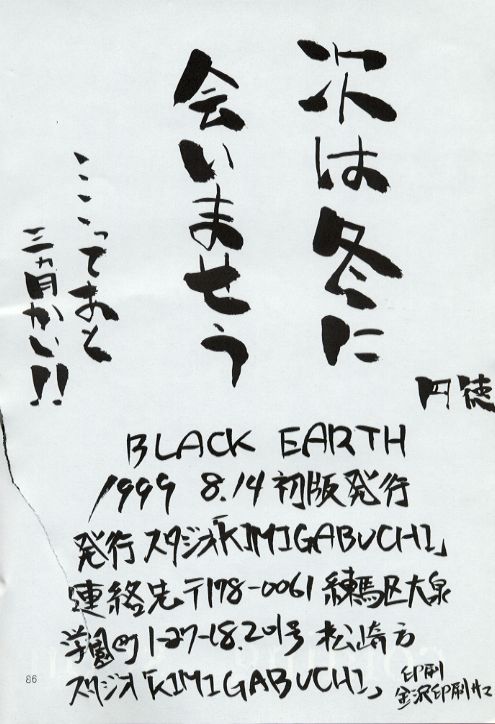 次は冬に
会いませう
ここってあと
三ヵ月かい!!
円徳
BLACK EARTH
1999 8.14 初版発行
発行 スタジオ「KIMIGABUCHI」
連絡先 〒178-0061 練馬区大泉
学園町1-27-18.201号 松崎方
スタジオ「KIMIGABUCHI」
印刷
金沢印刷サマ
86